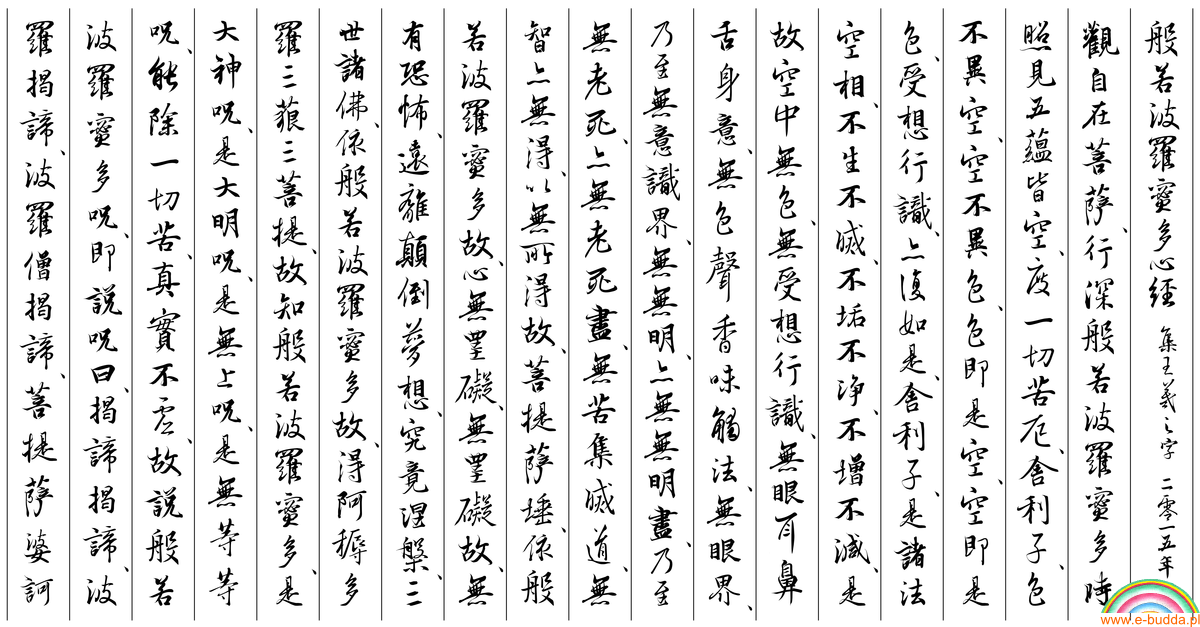 般若波羅蜜多心經 集王羲之字 二零一五年
觀自在菩薩、行深般若波羅蜜多時
照見五蘊皆空、度一切苦厄、舍利子、色
不異空、空不異色、色即是空、空即是
色、受想行識、亦復如是、舍利子、是諸法
空相、不生不滅、不垢不淨、不增不減、是
故空中無色、無受想行識、無眼耳鼻
舌身意、無色聲香味觸法、無眼界、
乃至無意識界、無無明、亦無無明盡、乃至
無老死、亦無老死盡、無苦集滅道、無
智亦無得、以無所得故、菩提薩埵、依般
若波羅蜜多故、心無罣礙、無罣礙故、無
有恐怖、遠離顛倒夢想、究竟涅槃、三
世諸佛、依般若波羅蜜多故、得阿耨多
羅三藐三菩提、故知般若波羅蜜多、是
大神咒、是大明咒、是無上咒、是無等等
咒、能除一切苦、真實不虛、故說般若
波羅蜜多咒、即說咒曰、揭諦揭諦、波
羅揭諦、波羅僧揭諦、菩提薩婆訶
www.e-budda.pl